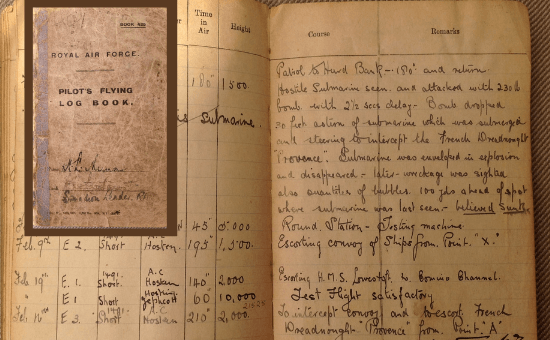 BOOK 425
ROYAL AIR FORCE.
PILOT'S FLYING
LOG BOOK.
Squadron Leader
Time
in
Air
Height
Course
Remarks
180" 1500
Submarine.
45" 5000
Feb. 9th E 2. Short Hoskin 195" 1,500
Feb 19th E. 1. Short A.C Hoskin 140" 2,000
" E 1 Short Jephcott 60 10,000
Feb 16th E 3. Short A.C Hoskin 210" 2,000
Patrol to Hurd Bank - 180° and return.
Hostile Submarine seen and attacked with 230 lb
bomb with 2½ secs delay - Bomb dropped
50 feet astern of submarine which was submerged
and steering to intercept the French Dreadnought
"Provence". Submarine was enveloped in explosion
and disappeared - later wreckage was sighted
also quantities of bubbles. 100 yds ahead of spot
where submarine was last seen - believed Sunk.
Round Station - Testing machine
Escorting convoy of Ships from Point "X."
Escorting H.M.S. Lowestoft to Comino Channel.
Test Flight satisfactory
To intercept convoy and to escort French
Dreadnought "Provence" from Point "A"